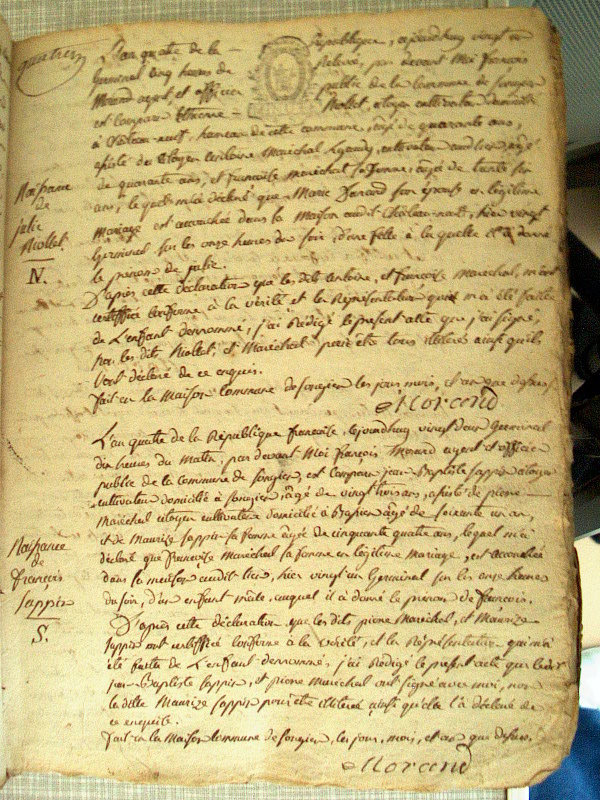 L'an quatre de la République, ajourdhuy vingt
Germinal cinq heures de relevé, par devant Moi françois
Morand agent et officier public de la commune de Songier
est comparu Etienne Niollet, citoyen cultivateur domicilié
à Château-neuf, hameau de cette commune, agé de quarante ans,
assisté du Citoyen Antoine Maréchal cultivateur audit lieu agé
de quarante ans, et francoise maréchal sa femme, agée de trente six
ans, lequel m'a déclaré que Marie son épouse en légitime
mariage est accouchée dans sa Maison audit Châteauneuf, hier vingt
Germinal sur les onze heures du soir, d'une fille à laquelle il a donné
le prenom de julie.
D'après cette déclaration que les dits Antoine, et francoise Maréchal, m'ont
certiffié conforme à la vérité et la Représentation qui m'a été faite
de L'enfant denommé, j'ai Rédigé le present acte que j'ai signé,
non les dits Niollet, et Maréchal pour être tous illitéré ainsi qu'ils
l'ont déclaré de ce enquis.
fait en la Maison commune de Songier les jour mois, et an que dessus
Morand
Naissance
de
julie
Niollet.
N.
L'an quatre de la République francoise, ajourdhuy vingt deux Germinal
dix heures du Matin, par devant Moi françois Morand agent et officier
public de la commune de Songier, est comparu jean-Baptiste Sappin citoyen
cultivateur domicilié à Songier, agé de vingt trois ans, assisté de pierre
Maréchal citoyen cultivateur domicilié à agé de soixante un an,
et de Maurize Sappin sa femme agée de cinquante quatre ans, lequel m'a
déclaré que francoise Maréchal sa femme en légitime Mariage, est accouchée
dans sa maison audit lieu, hier vingt un Germinal sur les onze heures
du soir, d'un enfant mâle, auquel il a donné le prenom de francois.
D'après cette déclaration que les dits pierre Maréchal, et Maurize
Sappin ont certiffié conforme à la vérité, et la Représentation qui m'a
été faite de L'enfant denommé, j'ai Rédigé le present acte que
jean-Baptiste Sappin, et pierre Maréchal ont signé avec moi, non
la dite Maurize Sappin pour être illitéré ainsi qu'elle l'a déclaré de
ce enquise.
fait en la Maison commune de Songier, les jour, mois, et an que dessus.
Morand
Naissance
de
françois
Sappin
S.